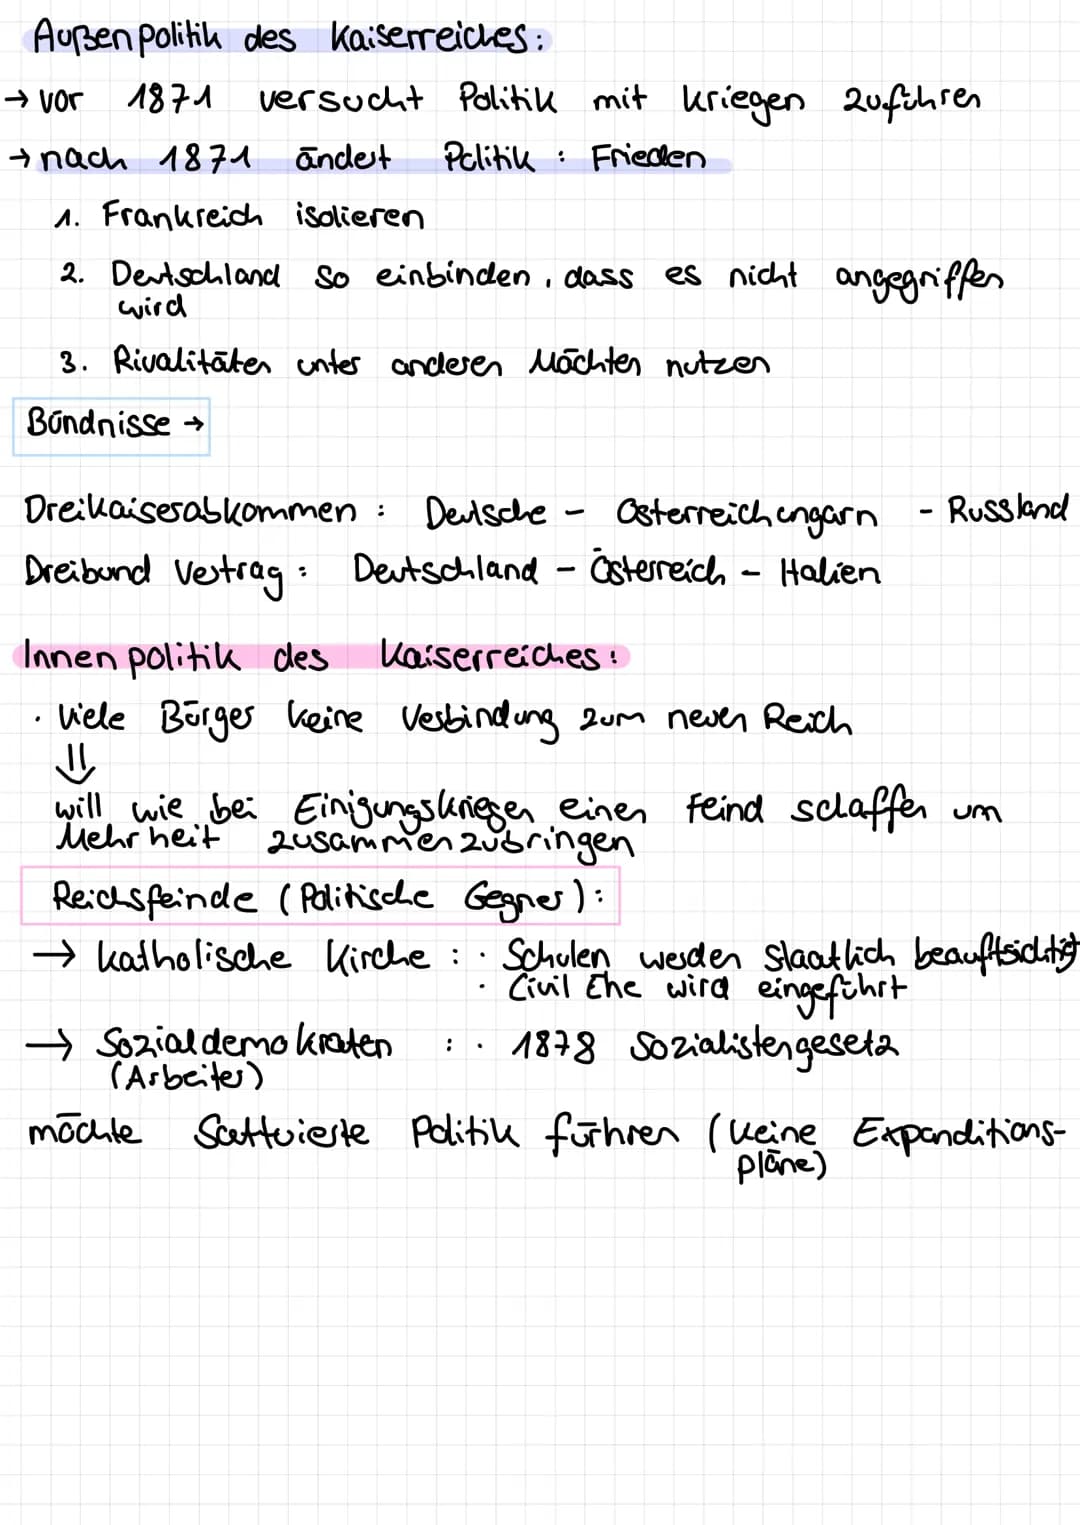 Außenpolitik des Kaiserreiches:
→ vor 1871 versucht Politik mit kriegen zuführen
→ nach 1871 ändert Politik : Frieden
1. Frankreich isolieren
2. Deutschland so einbinden, dass es nicht angegriffen
wird
3. Rivalitäten unter anderen Mächten nutzen
Bündnisse →
Dreikaiserabkommen : Deutsche - Österreichungarn - Russland
Dreibund Vertrag : Deutschland - Österreich - Italien
Innenpolitik des Kaiserreiches:
· Viele Bürger keine Verbindung zum neuen Reich
⇓
will wie bei Einigungskriegen einen Feind schaffen um
Mehrheit zusammenzubringen
Reichsfeinde (Politische Gegner):
→ katholische Kirche : · Schulen werden Staatlich beauftsichtigt
· Civil Ehe wird eingeführt
→ Sozialdemokraten : · 1878 Sozialistengesetz
(Arbeiter)
möchte Politik führen (keine Expanditions-
pläne)